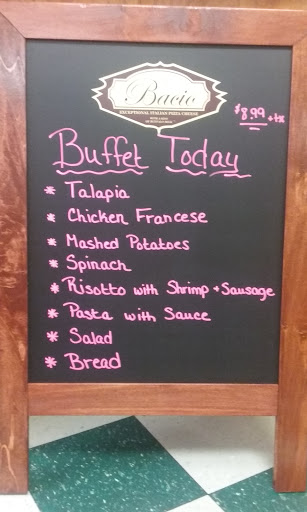 Bacio
EXCEPTIONAL ITALIAN PIZZA CHEESE
$8.99 + tx
Buffet Today
* Talapia
* Chicken Francese
* Mashed Potatoes
* Spinach
* Risotto with Shrimp + Sausage
* Pasta with Sauce
* Salad
* Bread